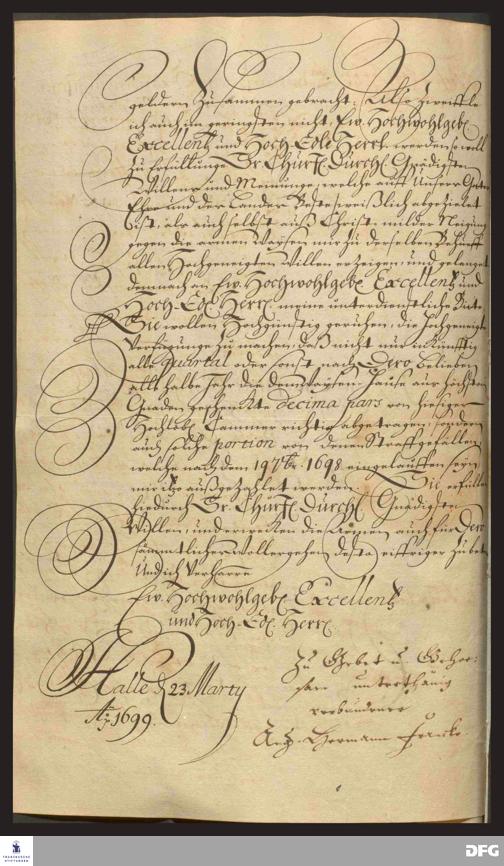 geldern zusammen gebracht: Alß zweiffle
ich auch im geringsten nicht, Ew. Hochwohlgeb.
Excellentz und Hoch-Edle Herrl. werden so wohl
zu Erfüllung Sr. Churf. Durchl. Gnädigsten
Willens und Meinung, welche auff Unsers Gottes
Ehre und der Lander Beste weißlich abgezielet
ist, als auch selbst auß Christ-milder Neigung
gegen die armen Waysen mir zu derselben Behueff
allen Hochgeneigten Willen erzeigen; und gelanget
demnach an Ew. Hochwohlgeb. Excellentz und
Hoch-Edl. Herrl. meine unterdienstliche Bitte
Sie wollen Hochgünstig geruhen, die Hochgeneigte
Verfügung zu machen, daß nicht nur inkünfftig
alle Quartal oder sonst nach Dero Belieben
alle halbe Jahr die dem Waysen-Hause aus höchsten
Gnaden geschenkte decima pars von hiesiger
Hochlöbl. Cammer richtig abgetragen, sondern
auch solche portion von denen Straffgefällen
welche nach dem 19 7br. 1698 eingelauffen seyn
mir itzo außgezahlet werden. Sie erfüllen
hiedurch Sr. Churf. Durchl. Gnädigsten
Willen, und erwecken die Armen auch für Dero
sämmtliches Wollergehen desto eiffriger zu beten
Und ich verharre
Ew. Hochwohlgeb. Excellentz
und Hoch-Edl. Herrl.
Halle d. 23. Marty
Ao. 1699.
Zu Gebet u. Gehor-
sam unterthänig
verbundener
Aug. Hermann Francke.
FRANCKESCHE STIFTUNGEN
DFG